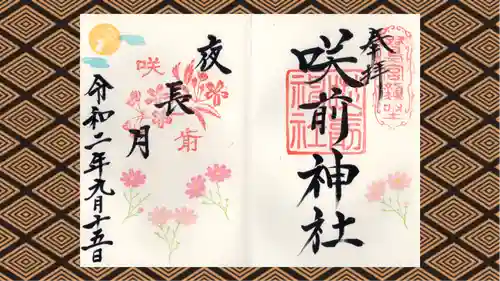 奉拝
咲前神社
咲前神社
夜長月
咲前
令和二年九月十五日